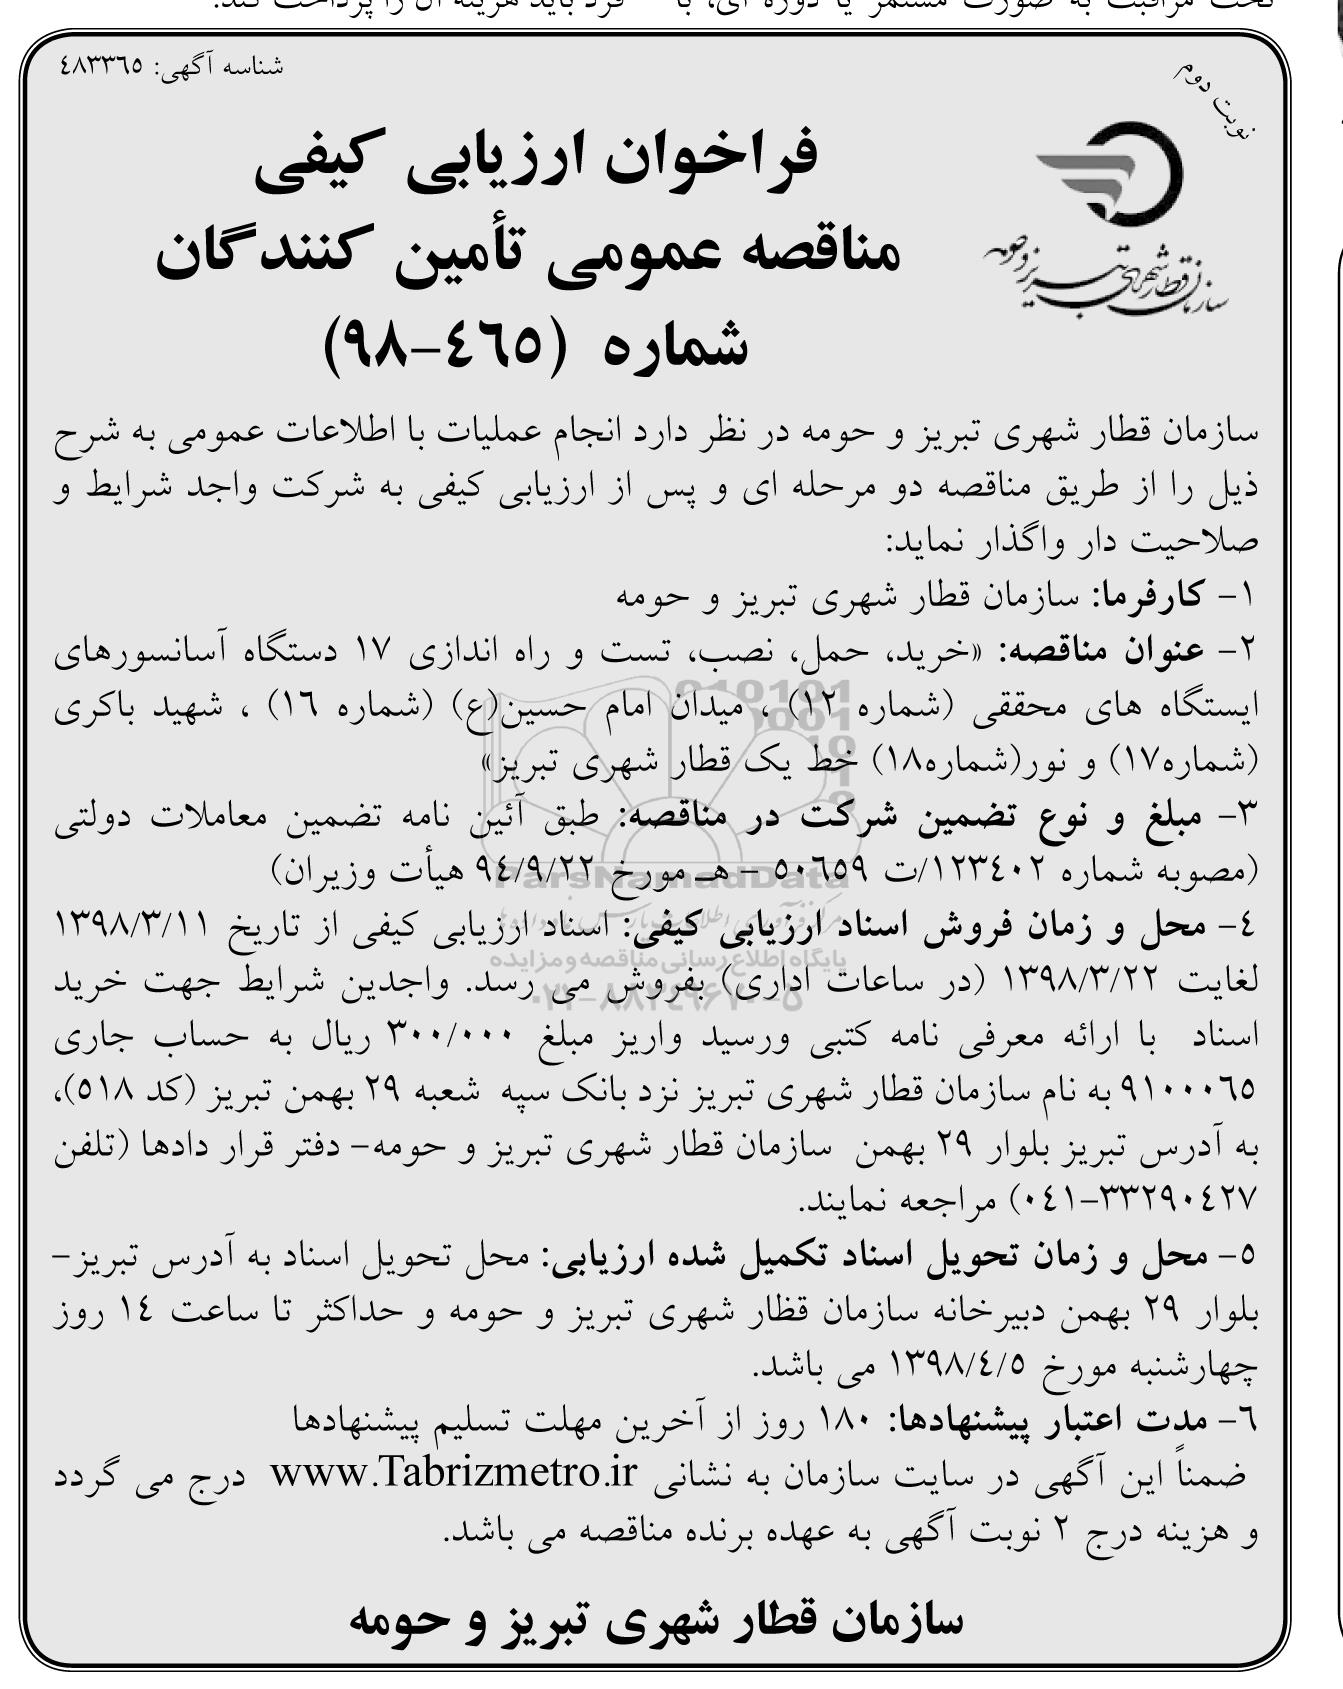 نوبت دوم
شناسه آگهی: ٤٨٣٣٦٥
سازمان قطار شهری تبریز و حومه
فراخوان ارزیابی کیفی
مناقصه عمومی تأمین کنندگان
شماره (٤٦٥-٩٨)
سازمان قطار شهری تبریز و حومه در نظر دارد انجام عملیات با اطلاعات عمومی به شرح
ذیل را از طریق مناقصه دو مرحله ای و پس از ارزیابی کیفی به شرکت واجد شرایط و
صلاحیت دار واگذار نماید:
١- کارفرما: سازمان قطار شهری تبریز و حومه
٢- عنوان مناقصه: «خرید، حمل، نصب، تست و راه اندازی ١٧ دستگاه آسانسورهای
ایستگاه های محققی (شماره ١٢) ، میدان امام حسین(ع) (شماره ١٦) ، شهید باکری
(شماره١٧) و نور(شماره١٨) خط یک قطار شهری تبریز»
٣- مبلغ و نوع تضمین شرکت در مناقصه: طبق آئین نامه تضمین معاملات دولتی
(مصوبه شماره ١٢٣٤٠٢/ت ٥٠٦٥٩ – هـ مورخ ٩٤/٩/٢٢ هیأت وزیران)
٤- محل و زمان فروش اسناد ارزیابی کیفی: اسناد ارزیابی کیفی از تاریخ ١٣٩٨/٣/١١
لغایت ١٣٩٨/٣/٢٢ (در ساعات اداری) بفروش می رسد. واجدین شرایط جهت خرید
اسناد با ارائه معرفی نامه کتبی ورسید واریز مبلغ ٣٠٠/٠٠٠ ریال به حساب جاری
٩١٠٠٠٦٥ به نام سازمان قطار شهری تبریز نزد بانک سپه شعبه ٢٩ بهمن تبریز (کد ٥١٨)،
به آدرس تبریز بلوار ٢٩ بهمن سازمان قطار شهری تبریز و حومه- دفتر قرار دادها (تلفن
٠٤١-٣٣٢٩٠٤٢٧) مراجعه نمایند.
٥- محل و زمان تحویل اسناد تکمیل شده ارزیابی: محل تحویل اسناد به آدرس تبریز-
بلوار ٢٩ بهمن دبیرخانه سازمان قظار شهری تبریز و حومه و حداکثر تا ساعت ١٤ روز
چهارشنبه مورخ ١٣٩٨/٤/٥ می باشد.
٦- مدت اعتبار پیشنهادها: ١٨٠ روز از آخرین مهلت تسلیم پیشنهادها
ضمناً این آگهی در سایت سازمان به نشانی www.Tabrizmetro.ir درج می گردد
و هزینه درج ٢ نوبت آگهی به عهده برنده مناقصه می باشد.
سازمان قطار شهری تبریز و حومه
ParsNamadData
پایگاه اطلاع رسانی مناقصه و مزایده
۰۲۱-۸۸۳۴۹۶۷۰-۵